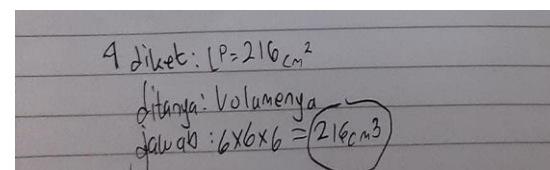 4 diket: LP=216 cm²
ditanya: Volumenya
jawab: 6x6x6 = 216cm3